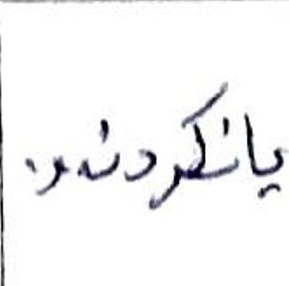 یانکردنەوە